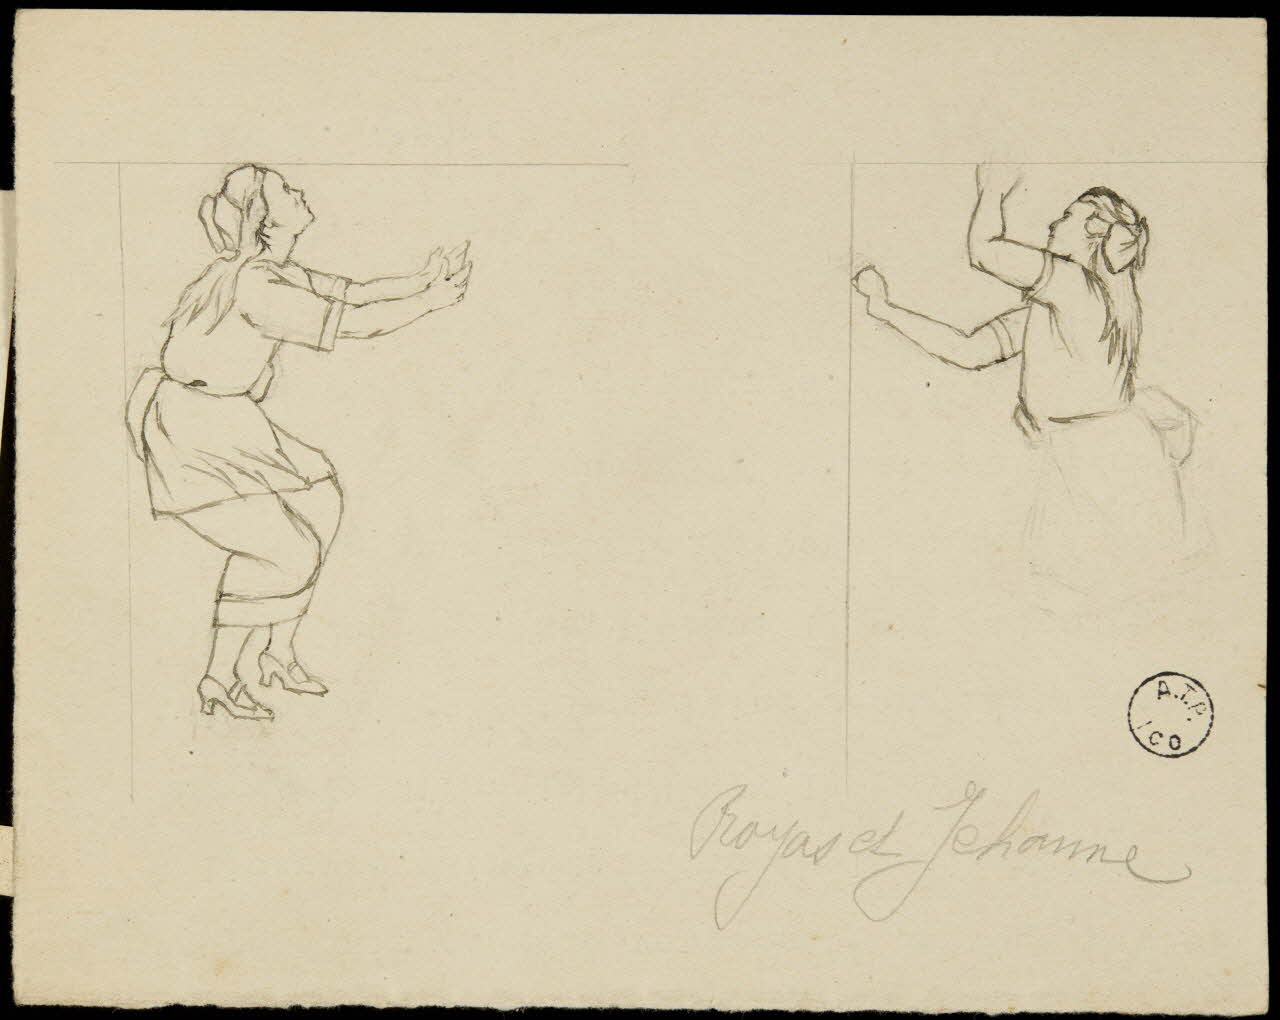 A.T.P.
ICO
Royas et Jehanne